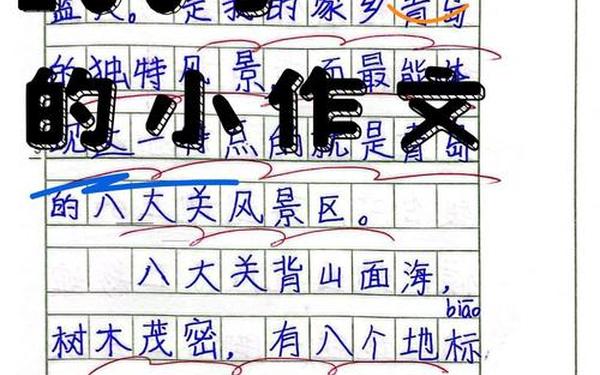 是我的家乡青岛
的独特风景，而最能体
的小作文
现这一特点的就是青岛
的八大关风景区。
八大关背山面海，
biāo
树木茂密，有八个地标